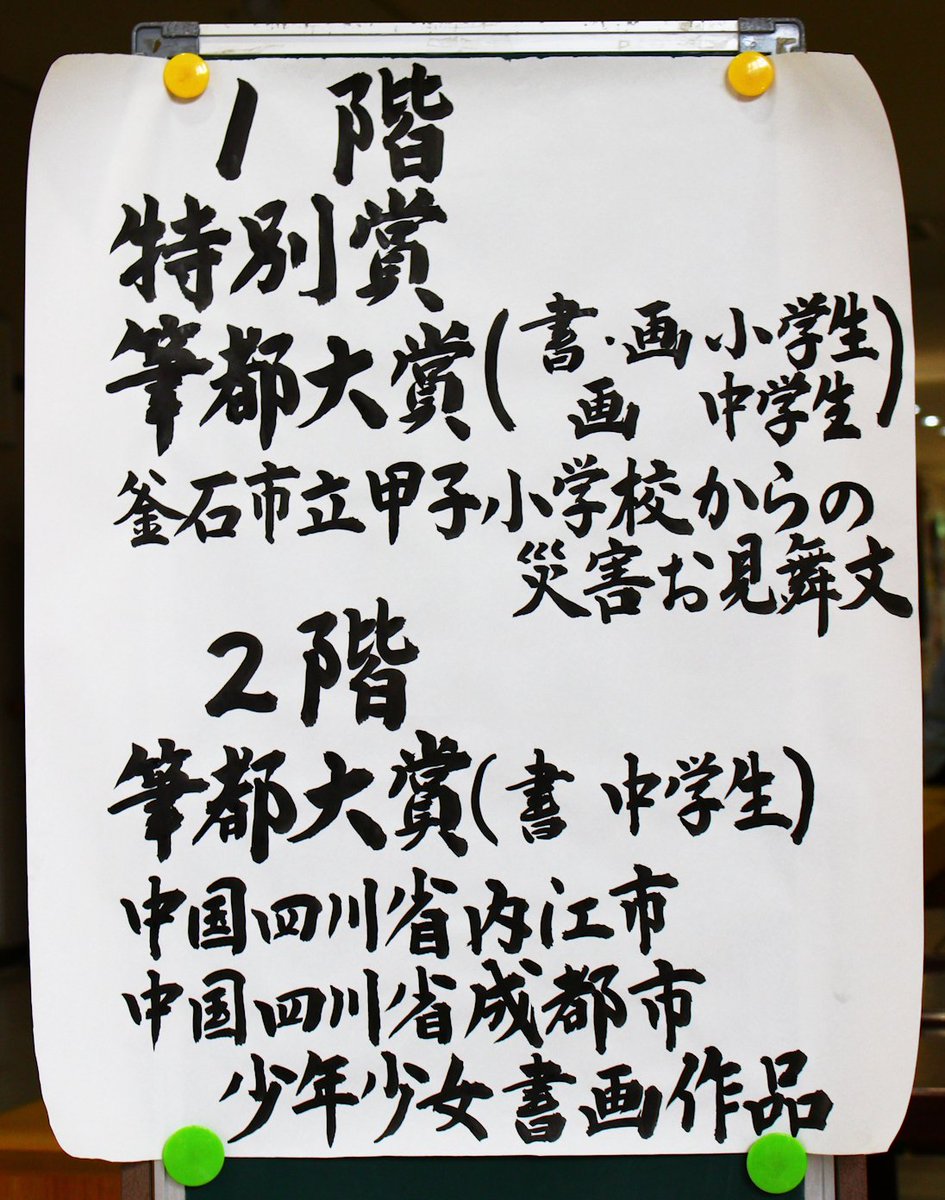 1階
特別賞
筆都大賞(書・画 小学生
画 中学生)
釜石市立甲子小学校からの
災害お見舞文
2階
筆都大賞(書 中学生)
中国四川省内江市
中国四川省成都市
少年少女書画作品